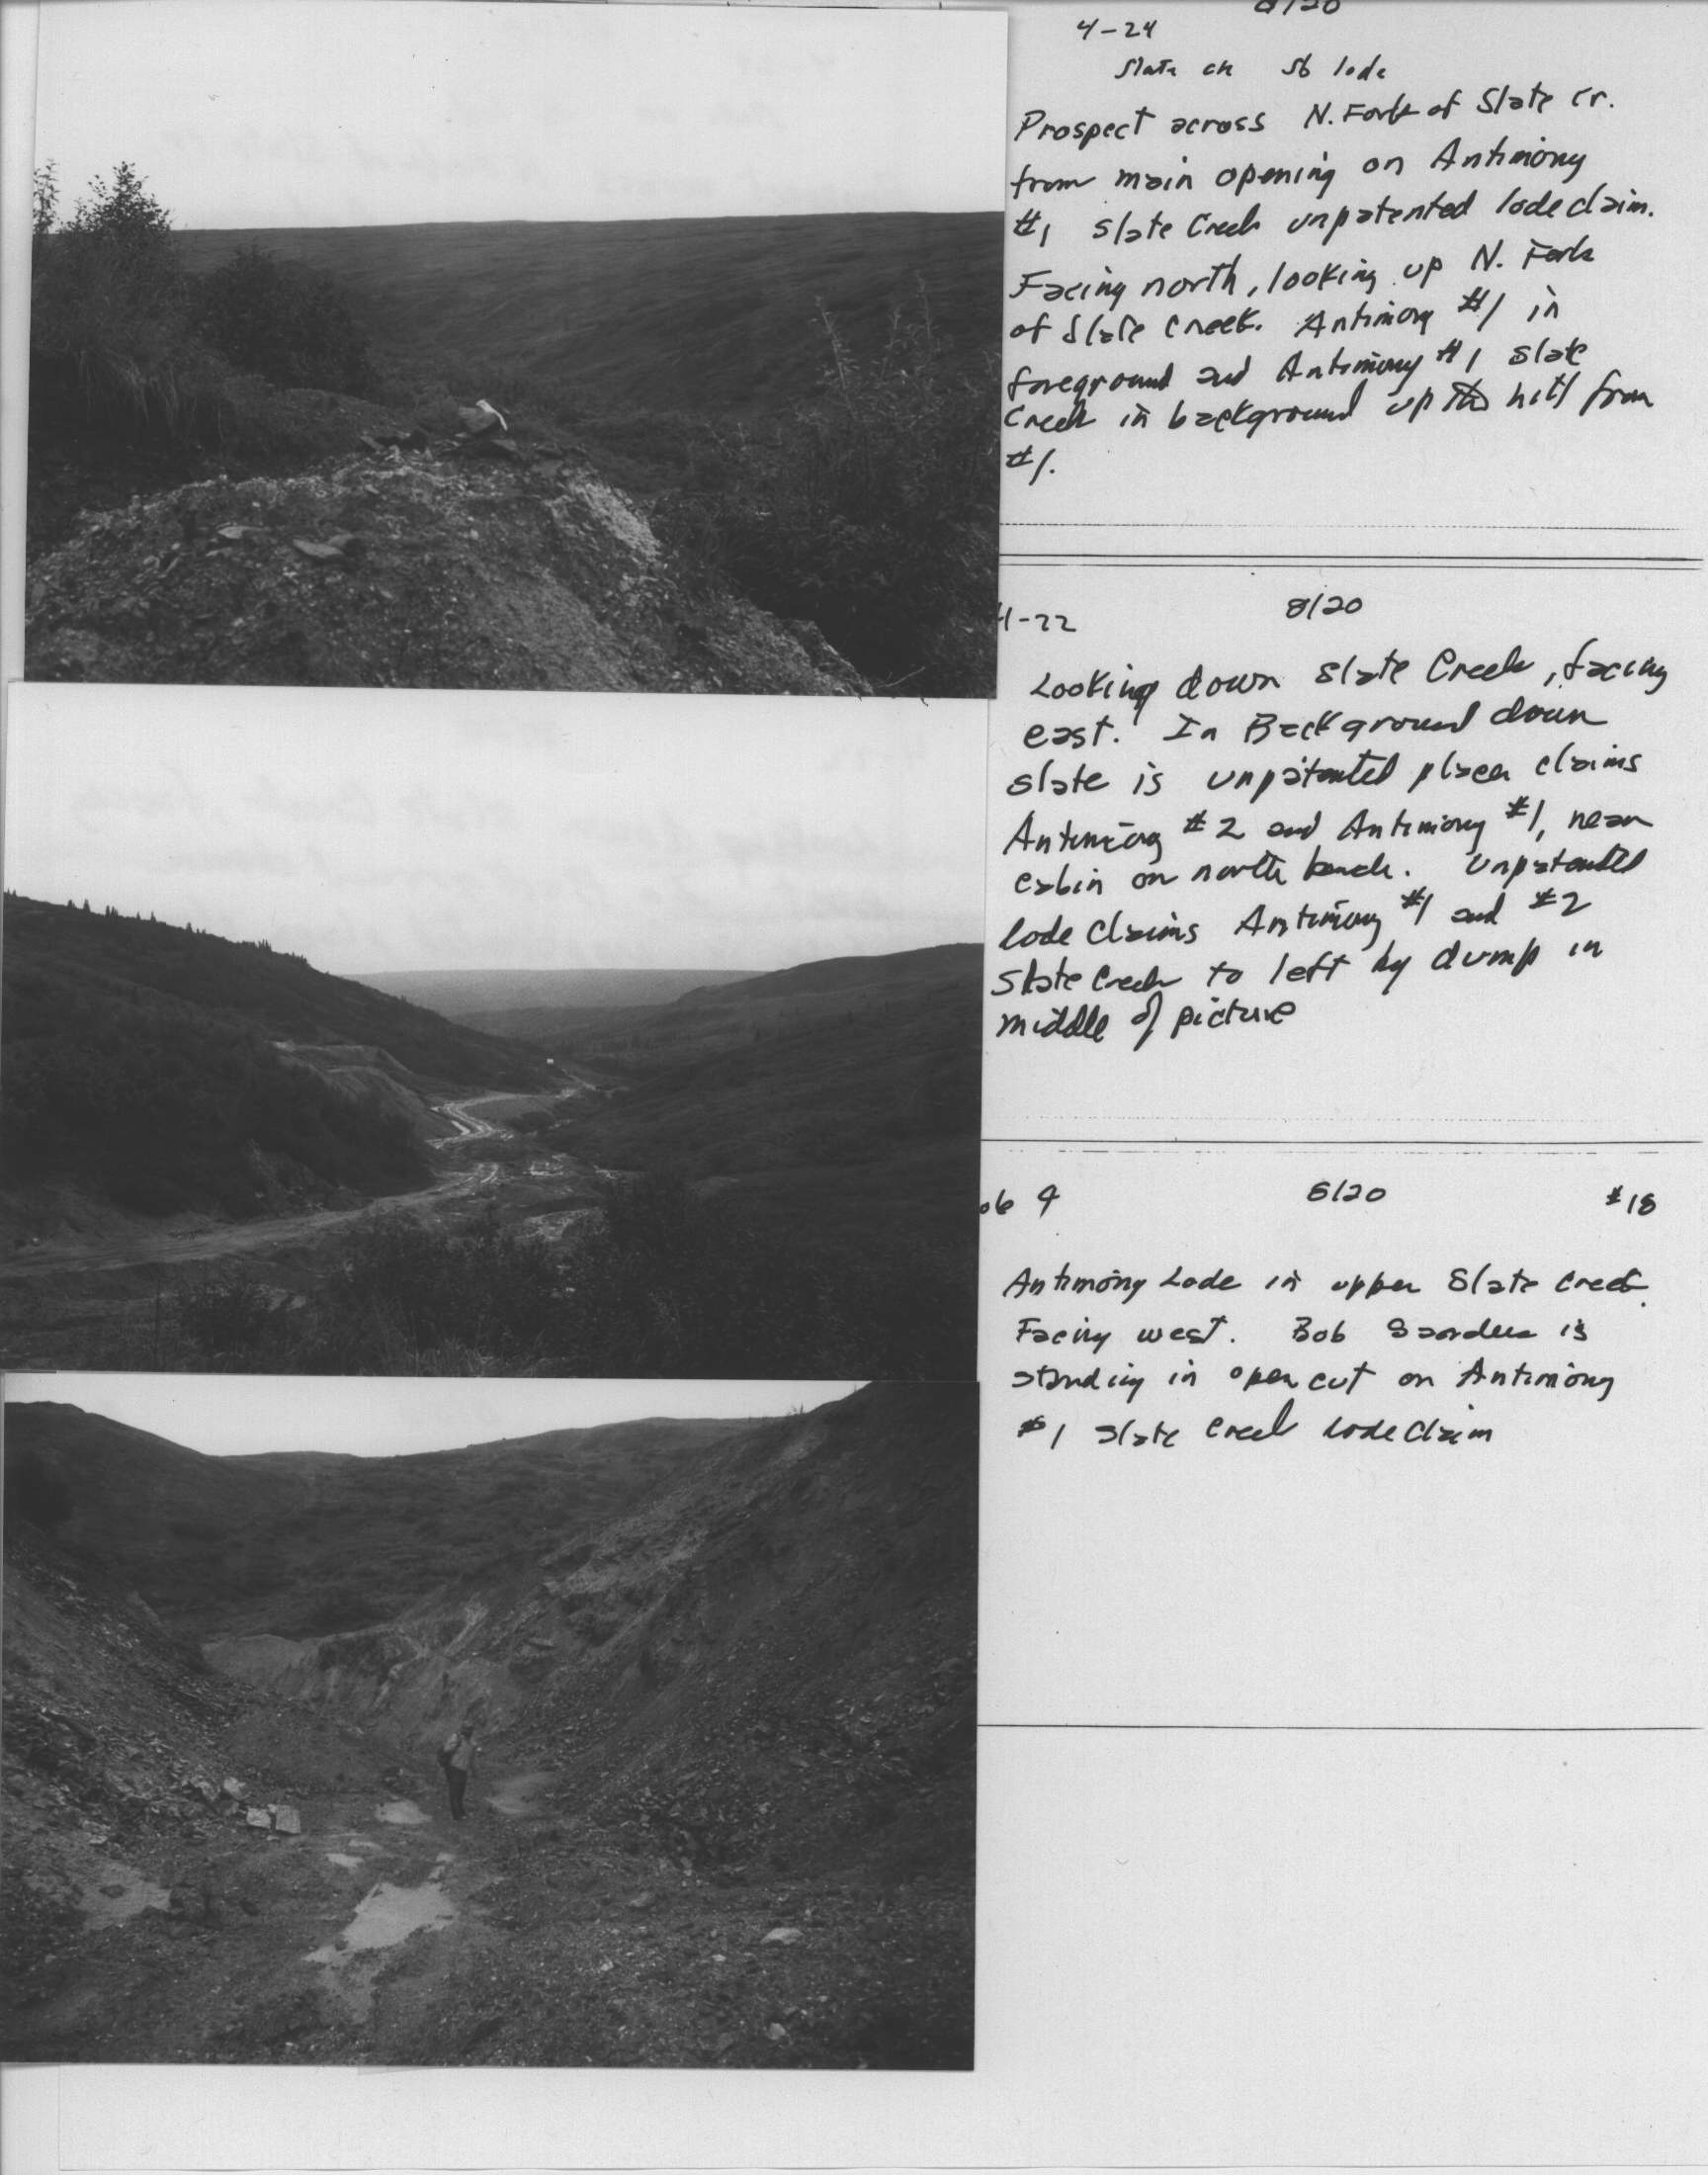 8/20
4-24
Slate ck Sb lode
Prospect across N. Fork of Slate Cr.
from main opening on Antimony
#1 Slate Creek unpatented lode claim.
Facing north, looking up N. Fork
of Slate Creek. Antimony #1 in
foreground and Antimony #1 Slate
Creek in background up the hill from
#1.
4-22 8/20
Looking down Slate Creek, facing
east. In Background down
slate is unpatented placer claims
Antimony #2 and Antimony #1, near
cabin on north bank. Unpatented
lode claims Antimony #1 and #2
Slate Creek to left by dump in
middle of picture
8/20 #18
Antimony Lode in upper Slate Creek.
Facing west. Bob is
standing in open cut on Antimony
#1 Slate Creek Lode Claim